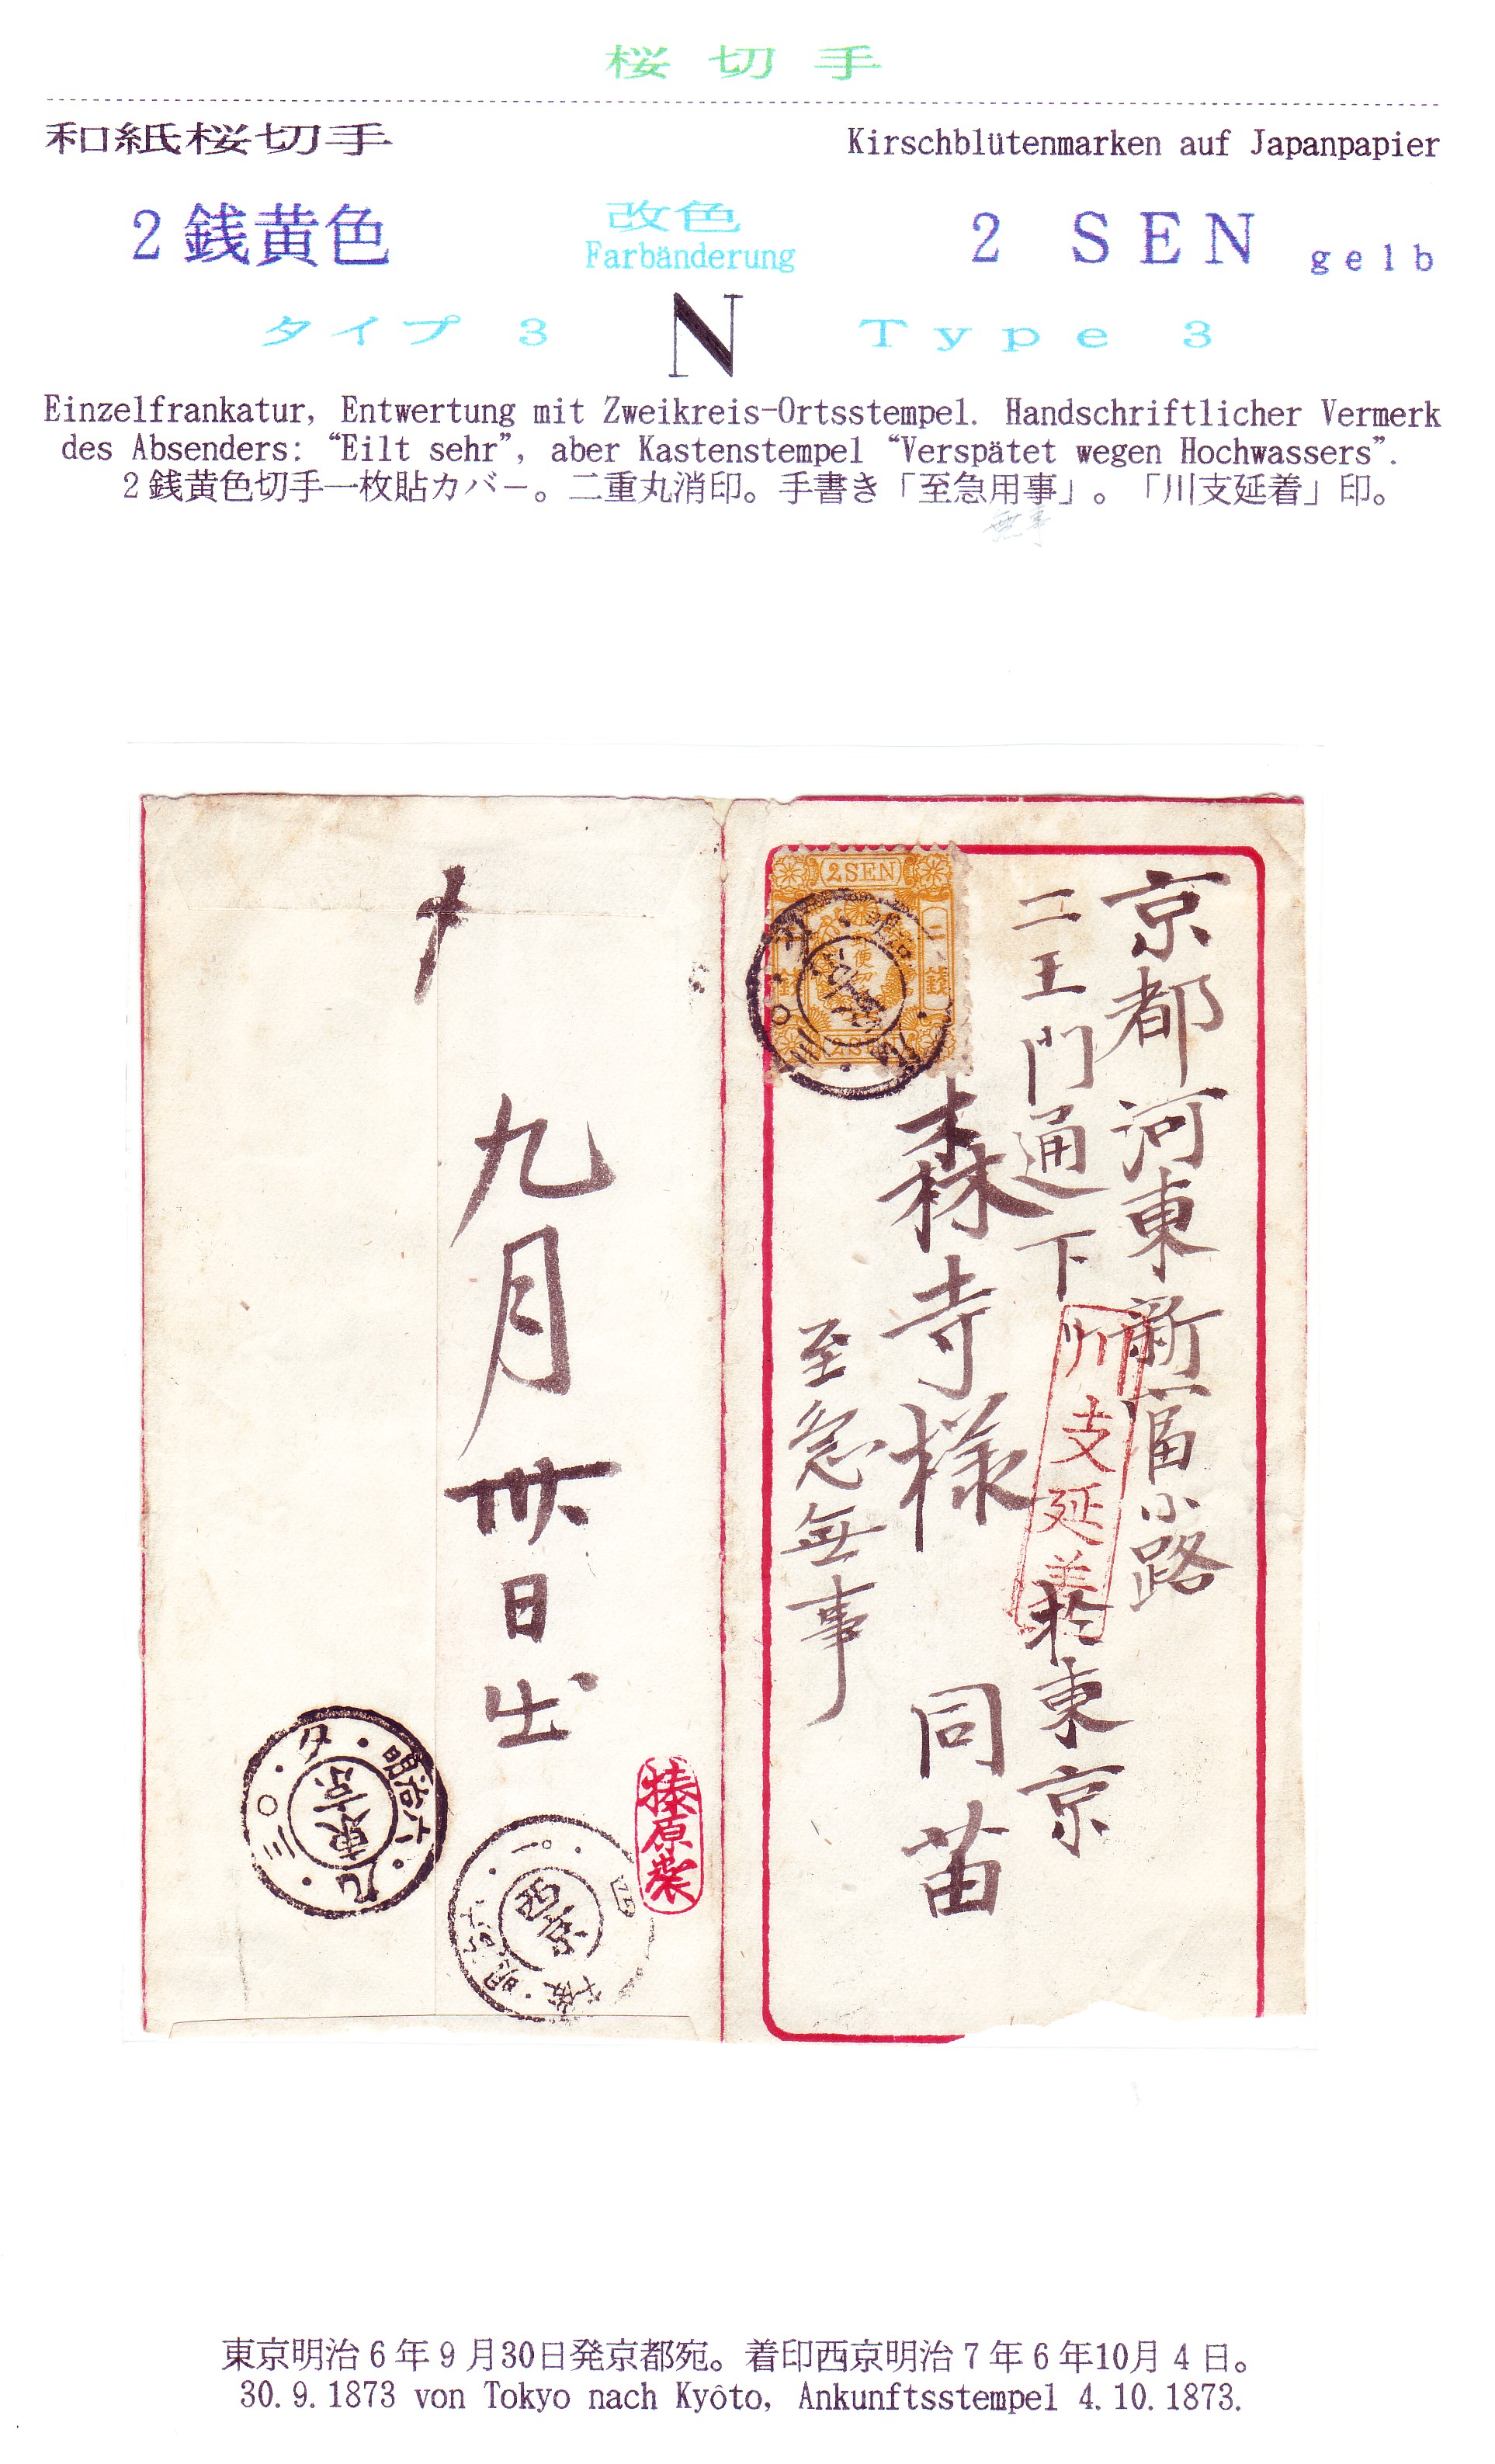 桜切手
和紙桜切手 Kirschblütenmarken auf Japanpapier
2銭黄色 改色 2 SEN gelb
Farbänderung
タイプ 3 N Type 3
Einzelfrankatur, Entwertung mit Zweikreis-Ortsstempel. Handschriftlicher Vermerk
des Absenders: “Eilt sehr”, aber Kastenstempel “Verspätet wegen Hochwassers”.
2銭黄色切手一枚貼カバー。二重丸消印。手書き「至急用事」。「川支延着」印。
無事
2SEN
二銭
京都河東新富小路
二王門通下
川支延着
於東京
森寺様
同苗
至急無事
九月卅日出
榛原製
東京
明治六・九・三〇・夕
西京
明治六・一〇・四
東京明治6年9月30日発京都宛。着印西京明治7年6年10月4日。
30.9.1873 von Tokyo nach Kyôto, Ankunftsstempel 4.10.1873.